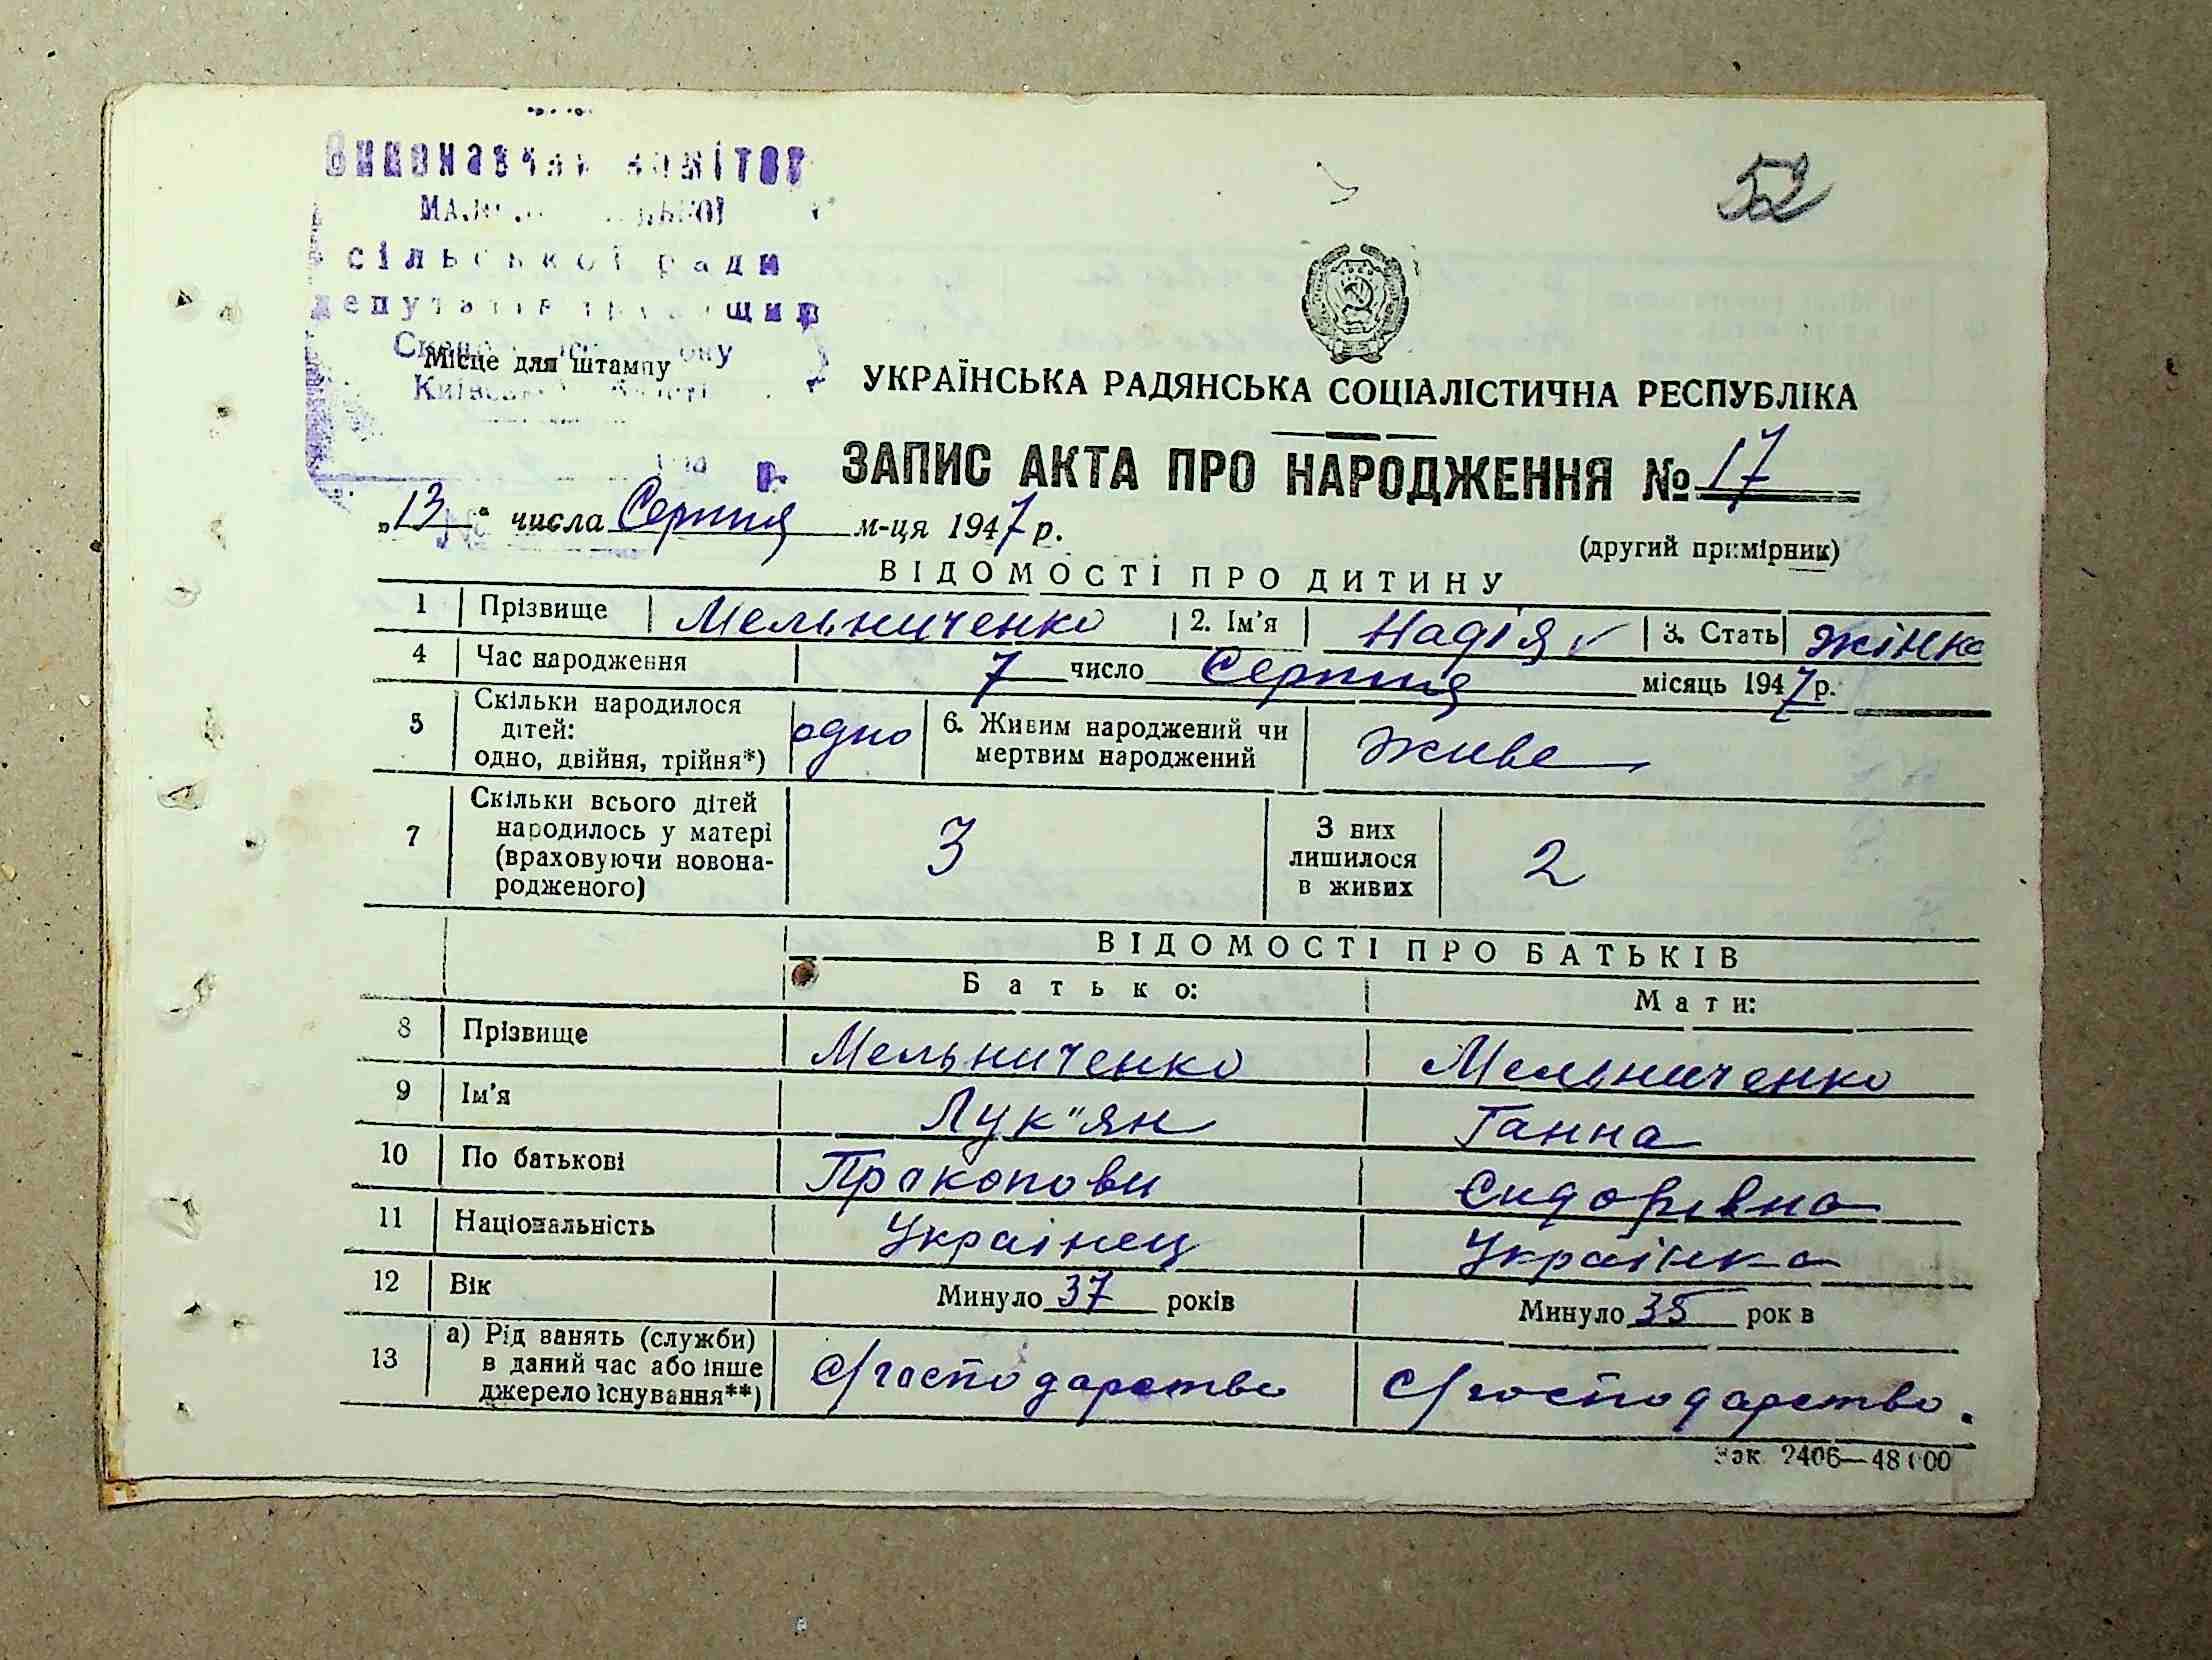 Виконавчий комітет
сільської ради
депутатів трудящих
Місце для штампу
р.
52
УКРАЇНСЬКА РАДЯНСЬКА СОЦІАЛІСТИЧНА РЕСПУБЛІКА
ЗАПИС АКТА ПРО НАРОДЖЕННЯ № 17
„13“ числа Серпня м-ця 1947 р.
(другий примірник)
ВІДОМОСТІ ПРО ДИТИНУ
1 Прізвище Мельниченко 2. Ім'я Надія 3. Стать жінка
4 Час народження 7 число Серпня місяць 1947 р.
5 Скільки народилося дітей: одно, двійня, трійня*) одно 6. Живим народжений чи мертвим народжений живе
7 Скільки всього дітей народилось у матері (враховуючи новонародженого) 3 З них лишилося в живих 2
ВІДОМОСТІ ПРО БАТЬКІВ
Батько: Мати:
8 Прізвище Мельниченко Мельниченко
9 Ім'я Лук"ян Ганна
10 По батькові Прокопови Сидорівна
11 Національність Українец Українка
12 Вік Минуло 37 років Минуло 35 років
13 а) Рід занять (служби) в даний час або інше джерело існування**) с/господарство с/господарство.
Зак. 2406—48